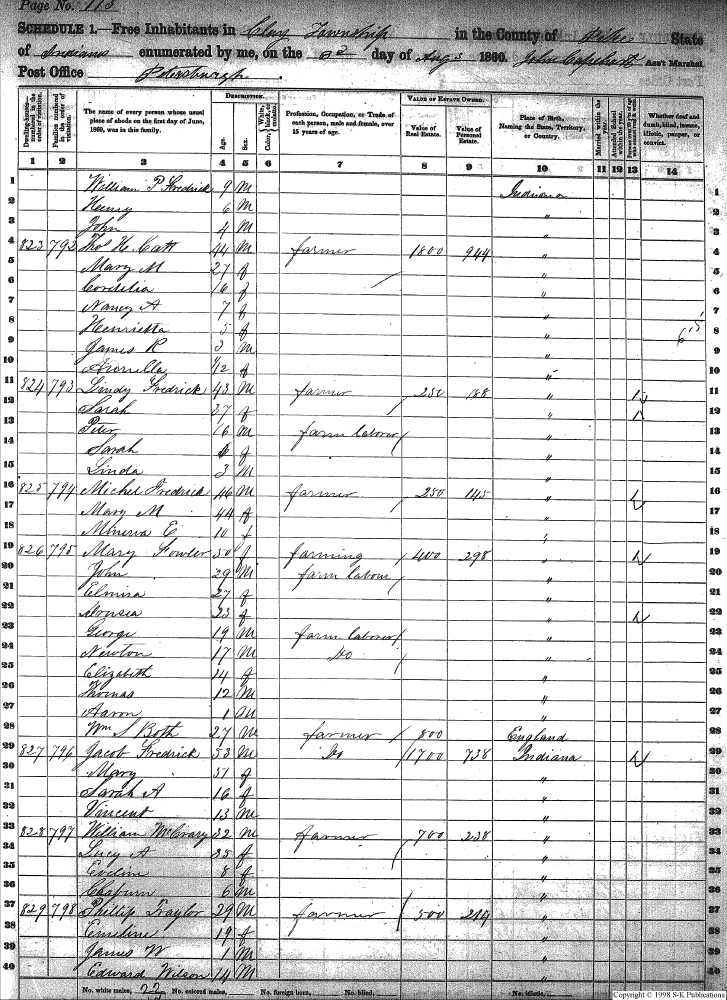 Page No. 113
SCHEDULE 1.—Free Inhabitants in Clay Township in the County of Pike State
of Indiana enumerated by me, on the day of Aug 1860. John Capehart Ass't Marshal
Post Office Petersburgh.
Dwelling-houses— numbered in the order of visitation.
Families numbered in the order of visitation.
The name of every person whose usual place of abode on the first day of June, 1860, was in this family.
DESCRIPTION.
Age.
Sex.
Color, White, black, or mulatto.
Profession, Occupation, or Trade of each person, male and female, over 15 years of age.
VALUE OF ESTATE OWNED.
Value of Real Estate.
Value of Personal Estate.
Place of Birth, Naming the State, Territory, or Country.
Married within the year.
Attended School within the year.
Whether deaf and dumb, blind, insane, idiotic, pauper, or convict.
1 2 3 4 5 6 7 8 9 10 11 12 13 14
1 William P Fredrick 9 M Indiana 1
2 Henry 6 M " 2
3 John 4 M " 3
4 823 792 Thos H. Catt 44 M farmer 1800 944 " 4
5 Mary M 27 f " 5
6 Cordelia 16 f " 6
7 Nancy A 7 f " 7
8 Henrietta 5 f " 8
9 James R 3 M " 9
10 /12 f " 10
11 824 793 Lindy Fredrick 43 M farmer 250 188 " 11
12 Sarah 37 f " 12
13 Peter 16 M farm laborer " 13
14 Sarah 6 f " 14
15 Linda 3 M " 15
16 825 794 Michel Fredrick 46 M farmer 250 145 " 16
17 Mary M 44 f " 17
18 Minerva E 10 f " 18
19 826 795 Mary Fowler 50 f farming 400 298 " 19
20 John 29 M farm labour " 20
21 Elmira 27 f " 21
22 23 f " 22
23 George 19 M farm laborer " 23
24 Newton 17 M Do " 24
25 Elizabeth 14 f " 25
26 Thomas 12 M " 26
27 Aaron 1 M " 27
28 Wm S Both 27 M farmer 800 England 28
29 827 796 Jacob Fredrick 53 M Do 1700 738 Indiana 29
30 Mary 51 f " 30
31 Sarah A 16 f " 31
32 Vincent 13 M " 32
33 828 797 William McCrary 32 M farmer 700 238 " 33
34 Lucy A 25 f " 34
35 Eveline 8 f " 35
36 6 M " 36
37 829 798 Phillip Traylor 29 M farmer 500 214 " 37
38 Emeline 19 f " 38
39 James W 1 M " 39
40 Edward Wilson 14 M " 40
No. white males, 22 No. colored males, No. foreign born, No. blind, No. idiotic,
Copyright © 1998 S-K Publications